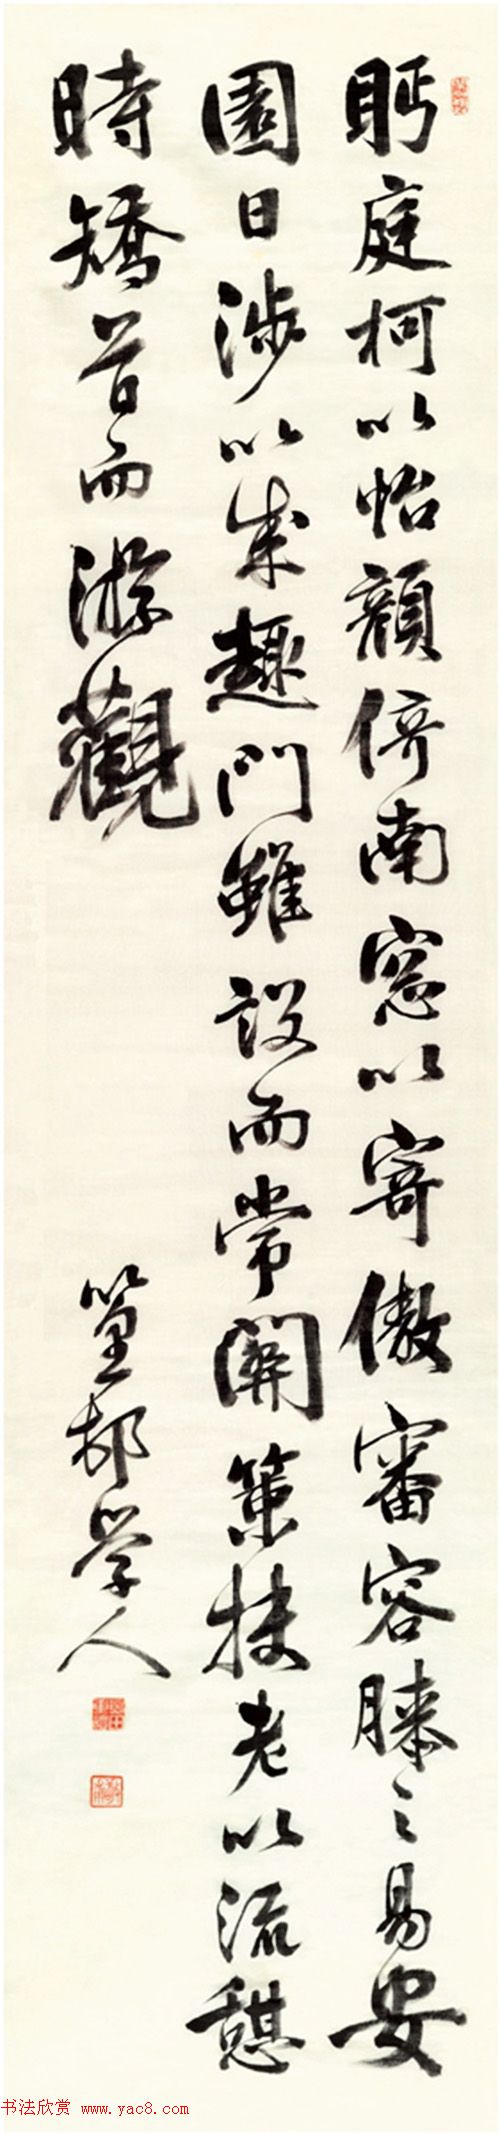 眄庭柯以怡顔倚南窓以寄傲審容膝之易安
園日涉以成趣門雖設而常關策扶老以流憩
時矯首而游觀
篁邨学人
书法欣赏 www.yac8.com